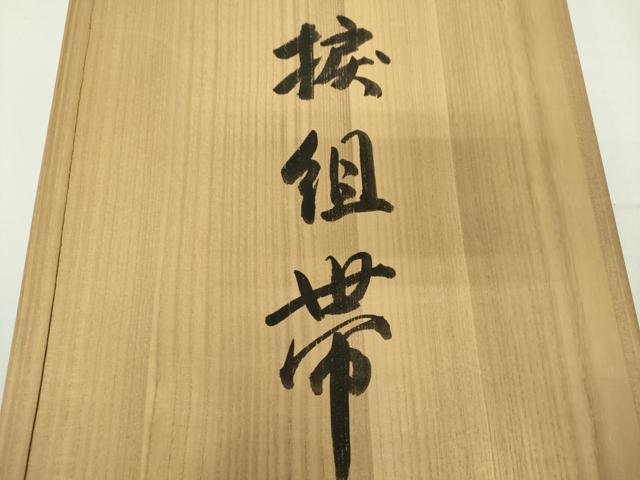 捩組帯